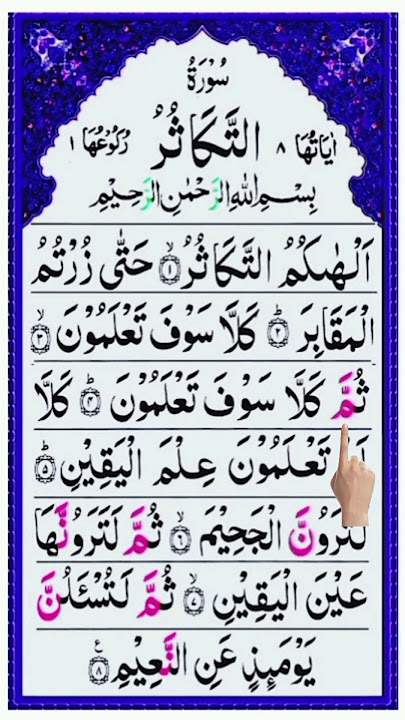 سُوْرَةُ
اٰيَاتُهَا ٨ التَّكَاثُرُ رُكُوْعُهَا ١
بِسْمِ اللّٰهِ الرَّحْمٰنِ الرَّحِيْمِ
اَلْهٰىكُمُ التَّكَاثُرُ ۙ﴿۱﴾ حَتّٰى زُرْتُمُ
الْمَقَابِرَ ؕ﴿۲﴾ كَلَّا سَوْفَ تَعْلَمُوْنَ ۙ﴿۳﴾
ثُمَّ كَلَّا سَوْفَ تَعْلَمُوْنَ ؕ﴿۴﴾ كَلَّا
تَعْلَمُوْنَ عِلْمَ الْيَقِيْنِ ؕ﴿۵﴾
لَتَرَوُنَّ الْجَحِيْمَ ۙ﴿۶﴾ ثُمَّ لَتَرَوُنَّهَا
عَيْنَ الْيَقِيْنِ ۙ﴿۷﴾ ثُمَّ لَتُسْـَٔلُنَّ
يَوْمَىِٕذٍ عَنِ النَّعِيْمِ ﴿۸﴾ ع